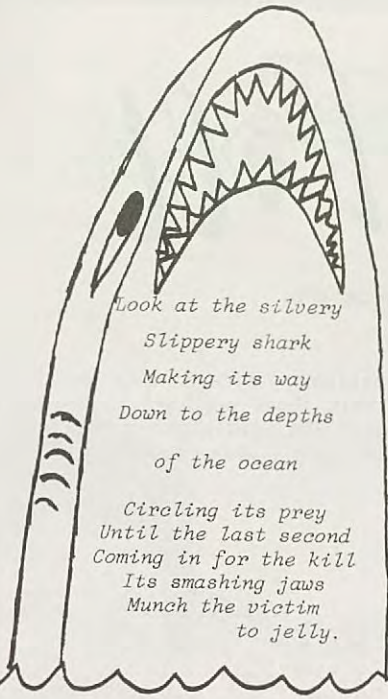 Look at the silvery
Slippery shark
Making its way
Down to the depths
of the ocean
Circling its prey
Until the last second
Coming in for the kill
Its smashing jaws
Munch the victim
to jelly.